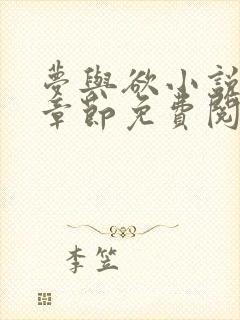 夢與欲小說
章節免費閱
李笠